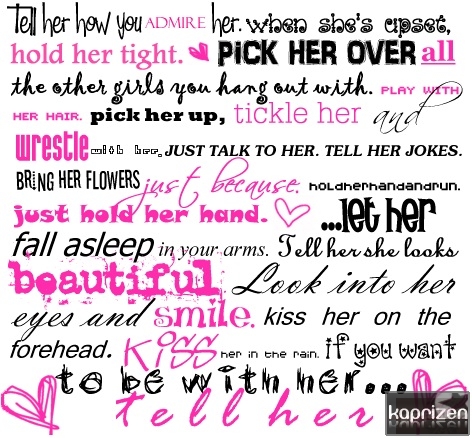 Tell her how you ADMIRE her. when she's upset,
hold her tight. PICK HER OVER all
the other girls you hang out with. PLAY WITH
HER HAIR. pick her up, tickle her and
wrestle with her. JUST TALK TO HER. TELL HER JOKES.
BRING HER FLOWERS just because. holdherhandandrun.
just hold her hand. ...let her
fall asleep in your arms. Tell her she looks
beautiful. Look into her
eyes and smile. kiss her on the
forehead. Kiss her in the rain. if you want
to be with her...
tell her
kaprizen